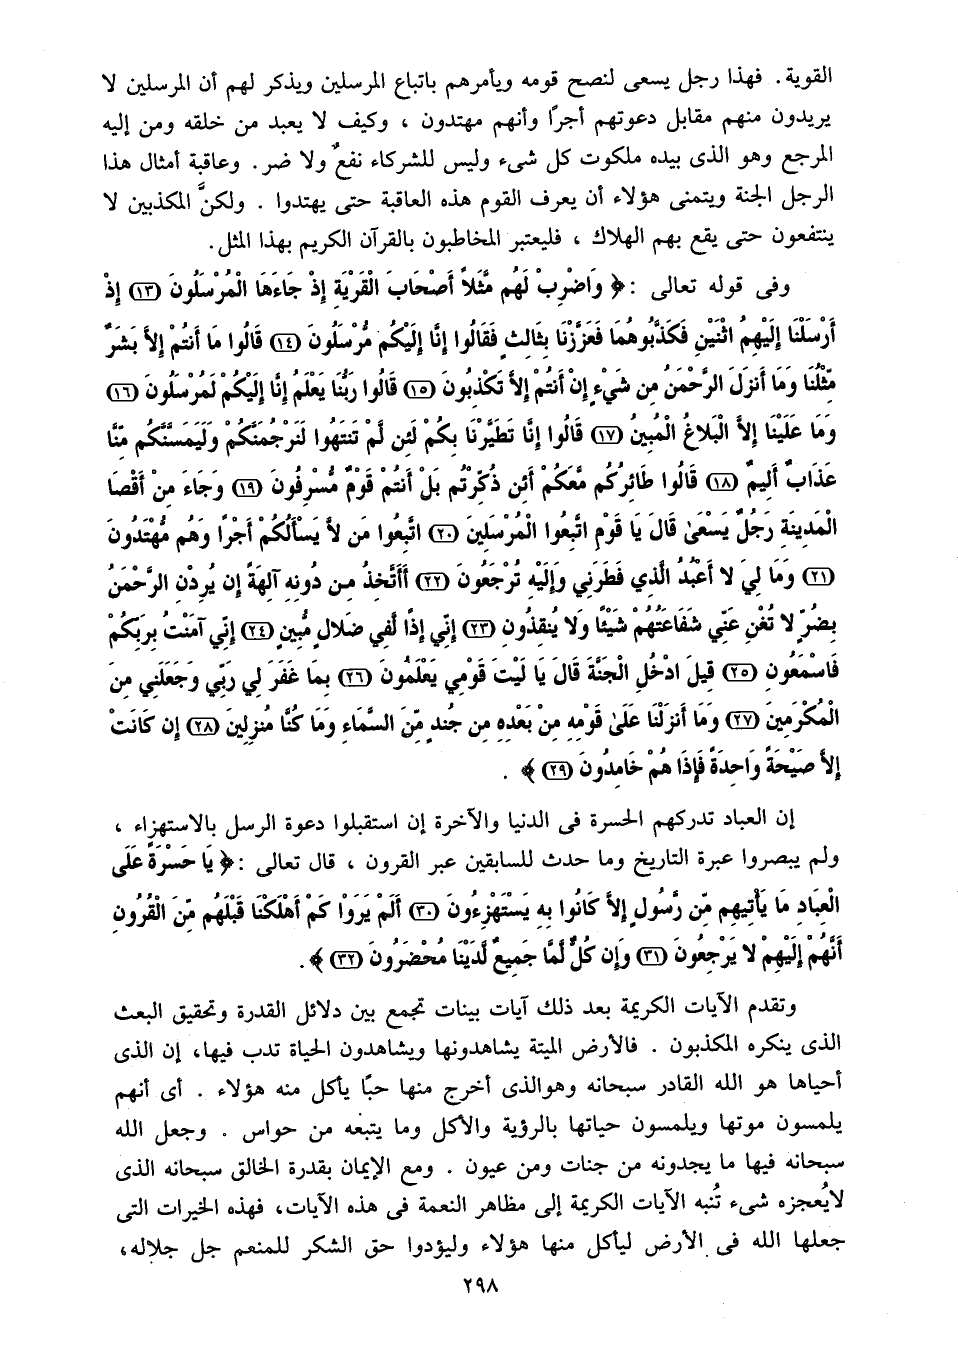 القوية . فهذا رجل يسعى لنصح قومه ويأمرهم باتباع المرسلين ويذكر لهم أن المرسلين لا
يريدون منهم مقابل دعوتهم أجرًا وأنهم مهتدون ، وكيف لا يعبد من خلقه ومن إليه
المرجع وهو الذى بيده ملكوت كل شىء وليس للشركاء نفعٌ ولا ضر . وعاقبة أمثال هذا
الرجل الجنة ويتمنى هؤلاء أن يعرف القوم هذه العاقبة حتى يهتدوا . ولكنَّ المكذبين لا
ينتفعون حتى يقع بهم الهلاك ، فليعتبر المخاطبون بالقرآن الكريم بهذا المثل.
وفى قوله تعالى :﴿ وَاضْرِبْ لَهُم مَّثَلاً أَصْحَابَ الْقَرْيَةِ إِذْ جَاءَهَا الْمُرْسَلُونَ (١٣) إِذْ
أَرْسَلْنَا إِلَيْهِمُ اثْنَيْنِ فَكَذَّبُوهُمَا فَعَزَّزْنَا بِثَالِثٍ فَقَالُوا إِنَّا إِلَيْكُم مُّرْسَلُونَ (١٤) قَالُوا مَا أَنتُمْ إِلاَّ بَشَرٌ
مِّثْلُنَا وَمَا أَنزَلَ الرَّحْمَنُ مِن شَيْءٍ إِنْ أَنتُمْ إِلاَّ تَكْذِبُونَ (١٥) قَالُوا رَبُّنَا يَعْلَمُ إِنَّا إِلَيْكُمْ لَمُرْسَلُونَ (١٦)
وَمَا عَلَيْنَا إِلاَّ الْبَلاغُ الْمُبِينُ (١٧) قَالُوا إِنَّا تَطَيَّرْنَا بِكُمْ لَئِن لَّمْ تَنتَهُوا لَنَرْجُمَنَّكُمْ وَلَيَمَسَّنَّكُم مِّنَّا
عَذَابٌ أَلِيمٌ (١٨) قَالُوا طَائِرُكُم مَّعَكُمْ أَئِن ذُكِّرْتُم بَلْ أَنتُمْ قَوْمٌ مُّسْرِفُونَ (١٩) وَجَاءَ مِنْ أَقْصَا
الْمَدِينَةِ رَجُلٌ يَسْعَىٰ قَالَ يَا قَوْمِ اتَّبِعُوا الْمُرْسَلِينَ (٢٠) اتَّبِعُوا مَن لاَّ يَسْأَلُكُمْ أَجْرًا وَهُم مُّهْتَدُونَ
(٢١) وَمَا لِيَ لا أَعْبُدُ الَّذِي فَطَرَنِي وَإِلَيْهِ تُرْجَعُونَ (٢٢) أَأَتَّخِذُ مِن دُونِهِ آلِهَةً إِن يُرِدْنِ الرَّحْمَنُ
بِضُرٍّ لا تُغْنِ عَنِّي شَفَاعَتُهُمْ شَيْئًا وَلا يُنقِذُونِ (٢٣) إِنِّي إِذًا لَّفِي ضَلالٍ مُّبِينٍ (٢٤) إِنِّي آمَنتُ بِرَبِّكُمْ
فَاسْمَعُونِ (٢٥) قِيلَ ادْخُلِ الْجَنَّةَ قَالَ يَا لَيْتَ قَوْمِي يَعْلَمُونَ (٢٦) بِمَا غَفَرَ لِي رَبِّي وَجَعَلَنِي مِنَ
الْمُكْرَمِينَ (٢٧) وَمَا أَنزَلْنَا عَلَىٰ قَوْمِهِ مِنْ بَعْدِهِ مِن جُندٍ مِّنَ السَّمَاءِ وَمَا كُنَّا مُنزِلِينَ (٢٨) إِن كَانَتْ
إِلاَّ صَيْحَةً وَاحِدَةً فَإِذَا هُمْ خَامِدُونَ (٢٩) ﴾ .
إن العباد تدركهم الحسرة فى الدنيا والآخرة إن استقبلوا دعوة الرسل بالاستهزاء ،
ولم يبصروا عبرة التاريخ وما حدث للسابقين عبر القرون ، قال تعالى :﴿ يَا حَسْرَةً عَلَى
الْعِبَادِ مَا يَأْتِيهِم مِّن رَّسُولٍ إِلاَّ كَانُوا بِهِ يَسْتَهْزِءُونَ (٣٠) أَلَمْ يَرَوْا كَمْ أَهْلَكْنَا قَبْلَهُم مِّنَ الْقُرُونِ
أَنَّهُمْ إِلَيْهِمْ لا يَرْجِعُونَ (٣١) وَإِن كُلٌّ لَّمَّا جَمِيعٌ لَّدَيْنَا مُحْضَرُونَ (٣٢) ﴾ .
وتقدم الآيات الكريمة بعد ذلك آيات بينات تجمع بين دلائل القدرة وتحقيق البعث
الذى ينكره المكذبون . فالأرض الميتة يشاهدونها ويشاهدون الحياة تدب فيها، إن الذى
أحياها هو الله القادر سبحانه وهوالذى أخرج منها حبًا يأكل منه هؤلاء . أى أنهم
يلمسون موتها ويلمسون حياتها بالرؤية والأكل وما يتبعه من حواس . وجعل الله
سبحانه فيها ما يجدونه من جنات ومن عيون . ومع الإيمان بقدرة الخالق سبحانه الذى
لايُعجزه شىء تُنبه الآيات الكريمة إلى مظاهر النعمة فى هذه الآيات، فهذه الخيرات التى
جعلها الله فى الأرض ليأكل منها هؤلاء وليؤدوا حق الشكر للمنعم جل جلاله،
٢٩٨